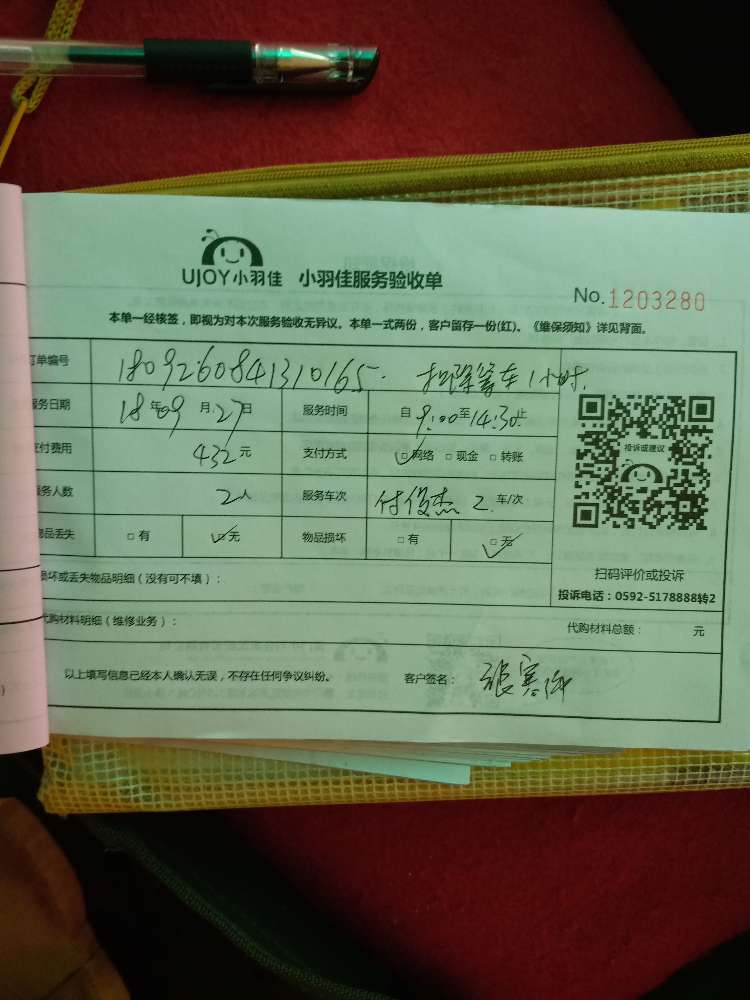 UJOY小羽佳 小羽佳服务验收单
No.1203280
本单一经核签，即视为对本次服务验收无异议。本单一式两份，客户留存一份(红)。《维保须知》详见背面。
订单编号 1809260841310165. 扣除等车1小时.
服务日期 18年09月27日 服务时间 自9:00至14:30止
支付费用 432元 支付方式 □网络 □现金 □转账
服务人数 2人 服务车次 付俊杰 2 车/次
物品丢失 □有 □无 物品损坏 □有 □无
投诉或建议
扫码评价或投诉
投诉电话：0592-5178888转2
损坏或丢失物品明细（没有可不填）：
代购材料明细（维修业务）： 代购材料总额： 元
以上填写信息已经本人确认无误，不存在任何争议纠纷。 客户签名：